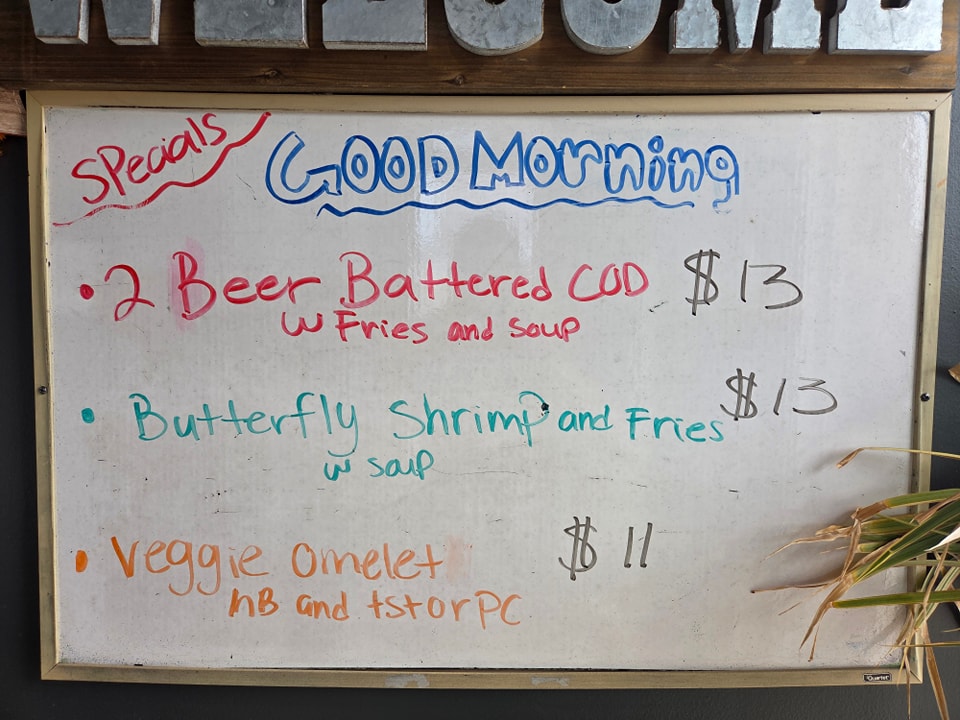 WELCOME
Specials
GOOD Morning
• 2 Beer Battered COD $13
w Fries and soup
• Butterfly Shrimp and Fries $13
w soup
• Veggie omelet $11
hB and tst or PC
Quartet